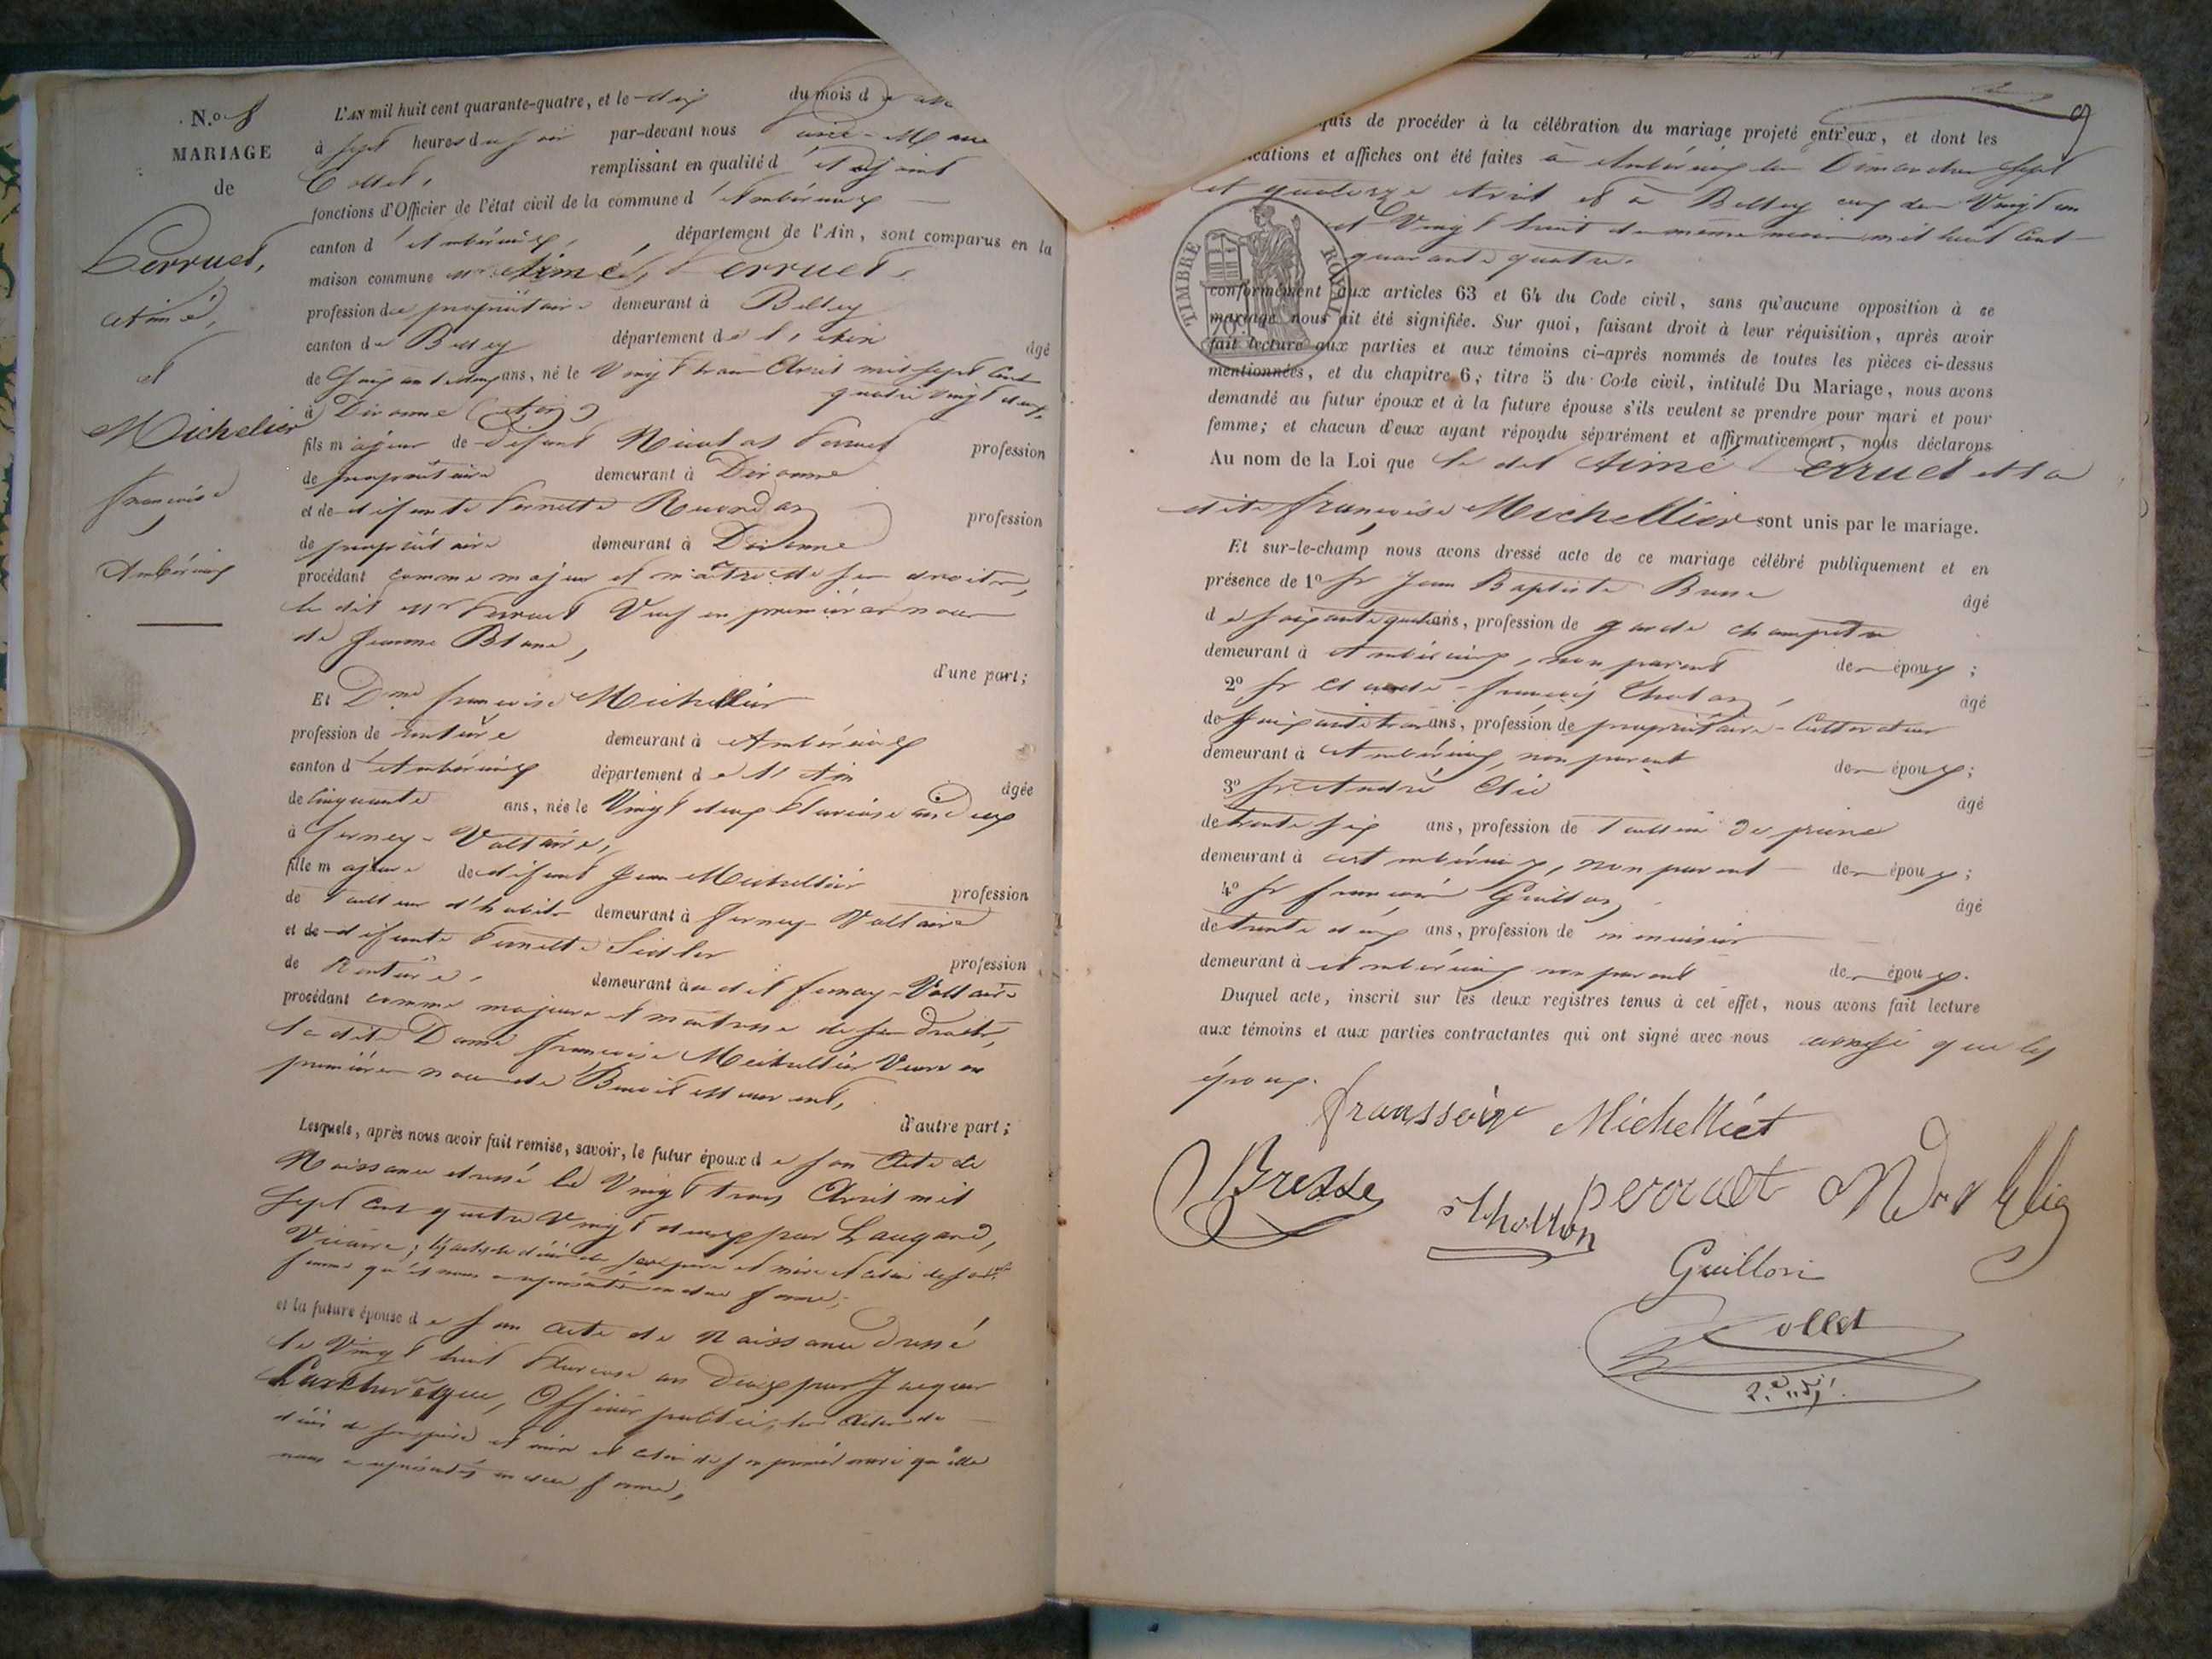 N.o 8
MARIAGE
de
Perruet,
Aimé,
et
Michelier
françoise
Ambérieux
L'AN mil huit cent quarante-quatre, et le dix du mois d
à sept heures du soir par-devant nous
Collet, remplissant en qualité d'adjoint
fonctions d'Officier de l'état civil de la commune d'Ambérieux
canton d'Ambérieux, département de l'Ain, sont comparus en la
maison commune Mr Aimé Perruet,
profession de propriétaire demeurant à Belley
canton de Belley département de l'Ain âgé
de soixante deux ans, né le Vingt trois Avril mil sept Cent
quatre vingt deux
à Divonne (Ain)
fils majeur de défunt Nicolas Perruet profession
de propriétaire demeurant à Divonne
et de défunte Pernette profession
de propriétaire demeurant à Divonne
procédant comme majeur et maître de ses droits,
le dit Mr Perruet Veuf en premières noces
de Jeanne Blanc,
d'une part;
Et Dme françoise Michellier
profession de rentière demeurant à Ambérieux
canton d'Ambérieux département de l'Ain âgée
de Cinquante ans, née le Vingt deux Pluviose an Deux
à ferney-Voltaire,
fille majeure de défunt Jean Michellier profession
de tailleur d'habits demeurant à ferney-Voltaire
et de défunte Pernette profession
de Rentière, demeurant au dit ferney-Voltaire
procédant comme majeure et maitresse de ses droits,
la dite Dame françoise Michellier Veuve en
premières noces de Benoit
d'autre part;
Lesquels, après nous avoir fait remise, savoir, le futur époux de son Acte de
Naissance dressé le Vingt trois Avril mil
sept cent quatre Vingt deux par Laugard,
Vicaire; les actes de décès de ses père et mère et celui de sa 1re
femme qu'il nous a représentés en due forme;
et la future épouse de son acte de Naissance dressé
le Vingt huit Pluviose an Deux par Jacques
Officier public, les actes de
décès de ses père et mère et celui de son premier mari qu'elle
nous a représentés en due forme,
9
quis de procéder à la célébration du mariage projeté entr'eux, et dont les
ications et affiches ont été faites à Ambérieux les Dimanches sept
et quatorze Avril et à Belley ceux des Vingt un
et Vingt huit du même mois mil huit Cent
quarante quatre.
TIMBRE ROYAL
conformément aux articles 63 et 64 du Code civil, sans qu'aucune opposition à ce
mariage nous ait été signifiée. Sur quoi, faisant droit à leur réquisition, après avoir
fait lecture aux parties et aux témoins ci-après nommés de toutes les pièces ci-dessus
mentionnées, et du chapitre 6, titre 5 du Code civil, intitulé Du Mariage, nous avons
demandé au futur époux et à la future épouse s'ils veulent se prendre pour mari et pour
femme; et chacun d'eux ayant répondu séparément et affirmativement, nous déclarons
Au nom de la Loi que le dit Aimé Perruet et la
dite françoise Michellier sont unis par le mariage.
Et sur-le-champ nous avons dressé acte de ce mariage célébré publiquement et en
présence de 1o Sr Jean Baptiste Bresse âgé
de soixante quatre ans, profession de garde champêtre
demeurant à Ambérieux, non parent des époux;
2o Sr Claude-françois âgé
de soixante trois ans, profession de propriétaire-Cultivateur
demeurant à Ambérieux, non parent des époux;
3o Sr André Elie âgé
de trente six ans, profession de tailleur de pierre
demeurant à Ambérieux, non parent des époux;
4o Sr françois Guillon, âgé
de trente deux ans, profession de menuisier
demeurant à Ambérieux non parent des époux.
Duquel acte, inscrit sur les deux registres tenus à cet effet, nous avons fait lecture
aux témoins et aux parties contractantes qui ont signé avec nous ainsi que les
époux.
franssoise Michelliet
Bresse perruet
Elie
Guillon
Collet